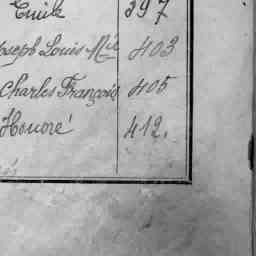 Emile 397
Joseph Louis Mie 403
Charles François 405
Honoré 412.